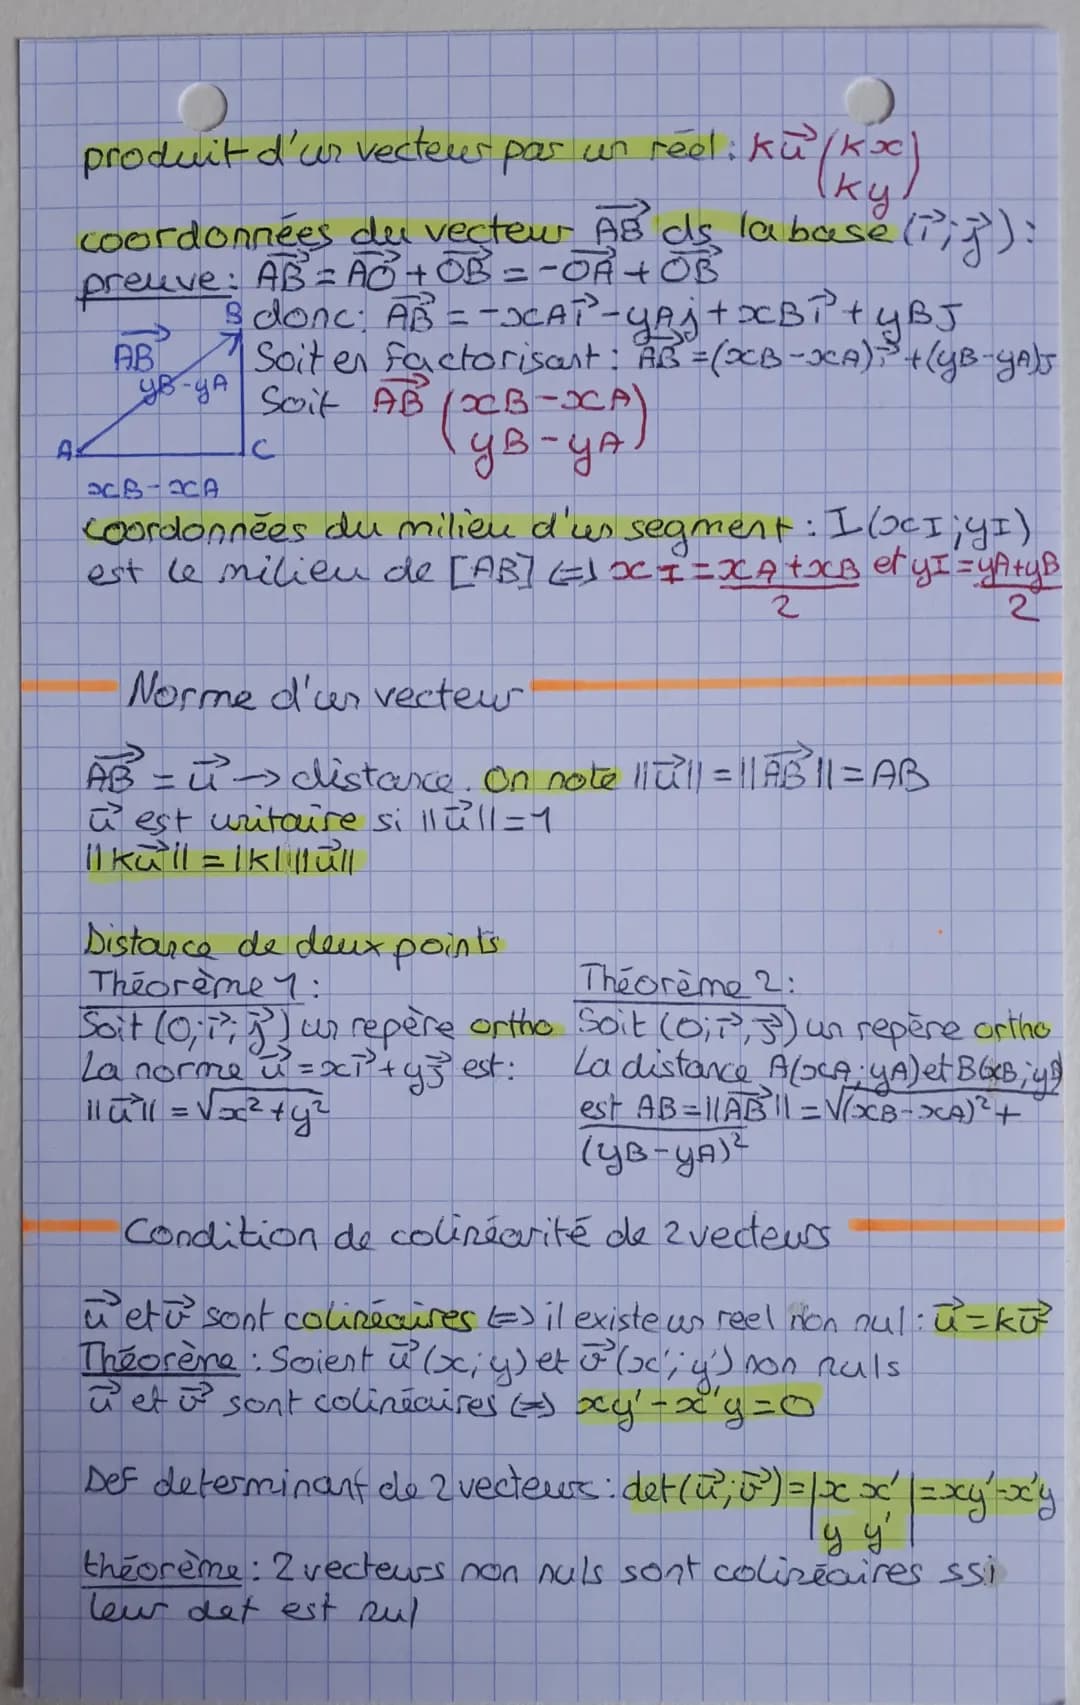 produit d'un vecteur par un réel : ku⃗ (kx
ky)
coordonnées du vecteur AB⃗ ds la base (i⃗;j⃗) :
preuve : AB⃗ = AO⃗ + OB⃗ = -OA⃗ + OB⃗
B donc : AB⃗ = -xAi⃗ - yAj + xBi⃗ + yBJ
AB⃗ Soit en factorisant : AB⃗ = (xB-xA)i⃗ + (yB-yA)j
yB-yA Soit AB⃗ (xB-xA
yB-yA)
A C
xB-xA
coordonnées du milieu d'un segment : I(xI;yI)
est le milieu de [AB] (=) xI = xA+xB et yI = yA+yB
2 2
Norme d'un vecteur
AB⃗ = u⃗ → distance. On note ||u⃗|| = ||AB⃗|| = AB
u⃗ est unitaire si ||u⃗||=1
||ku⃗|| = |k| ||u⃗||
Distance de deux points
Théorème 1 :
Soit (O;i⃗;j⃗) un repère ortho
La norme u⃗ = xi⃗ + yj⃗ est :
||u⃗|| = √x²+y²
Théorème 2 :
Soit (O;i⃗,j⃗) un repère ortho
La distance A(xA;yA) et B(xB;yB)
est AB = ||AB⃗|| = √(xB-xA)² +
(yB-yA)²
Condition de colinéarité de 2 vecteurs
u⃗ et v⃗ sont colinéaires (=) il existe un reel non nul : u⃗ = kv⃗
Théorème : Soient u⃗(x;y) et v⃗(x';y') non nuls
u⃗ et v⃗ sont colinéaires (=) xy'-x'y=0
Def determinant de 2 vecteurs : det(u⃗;v⃗) = |x x'| = xy'-x'y
|y y'|
théorème : 2 vecteurs non nuls sont colinéaires ssi
leur det est nul